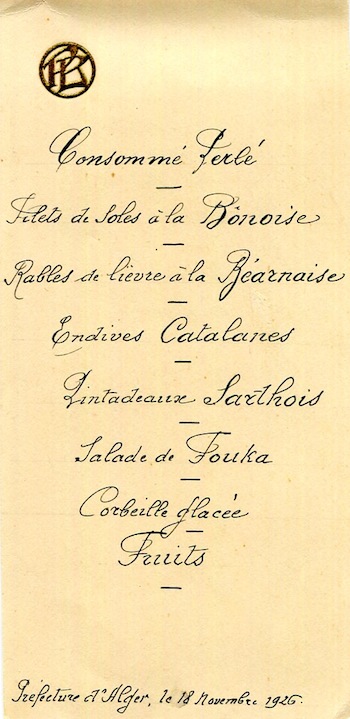 Consommé Perlé
Filets de Soles à la Bônoise
Rables de lièvre à la Béarnaise
Endives Catalanes
Pintadeaux Sarthois
Salade de Fouka
Corbeille glacée
Fruits
Préfecture d'Alger, le 18 Novembre 1926.